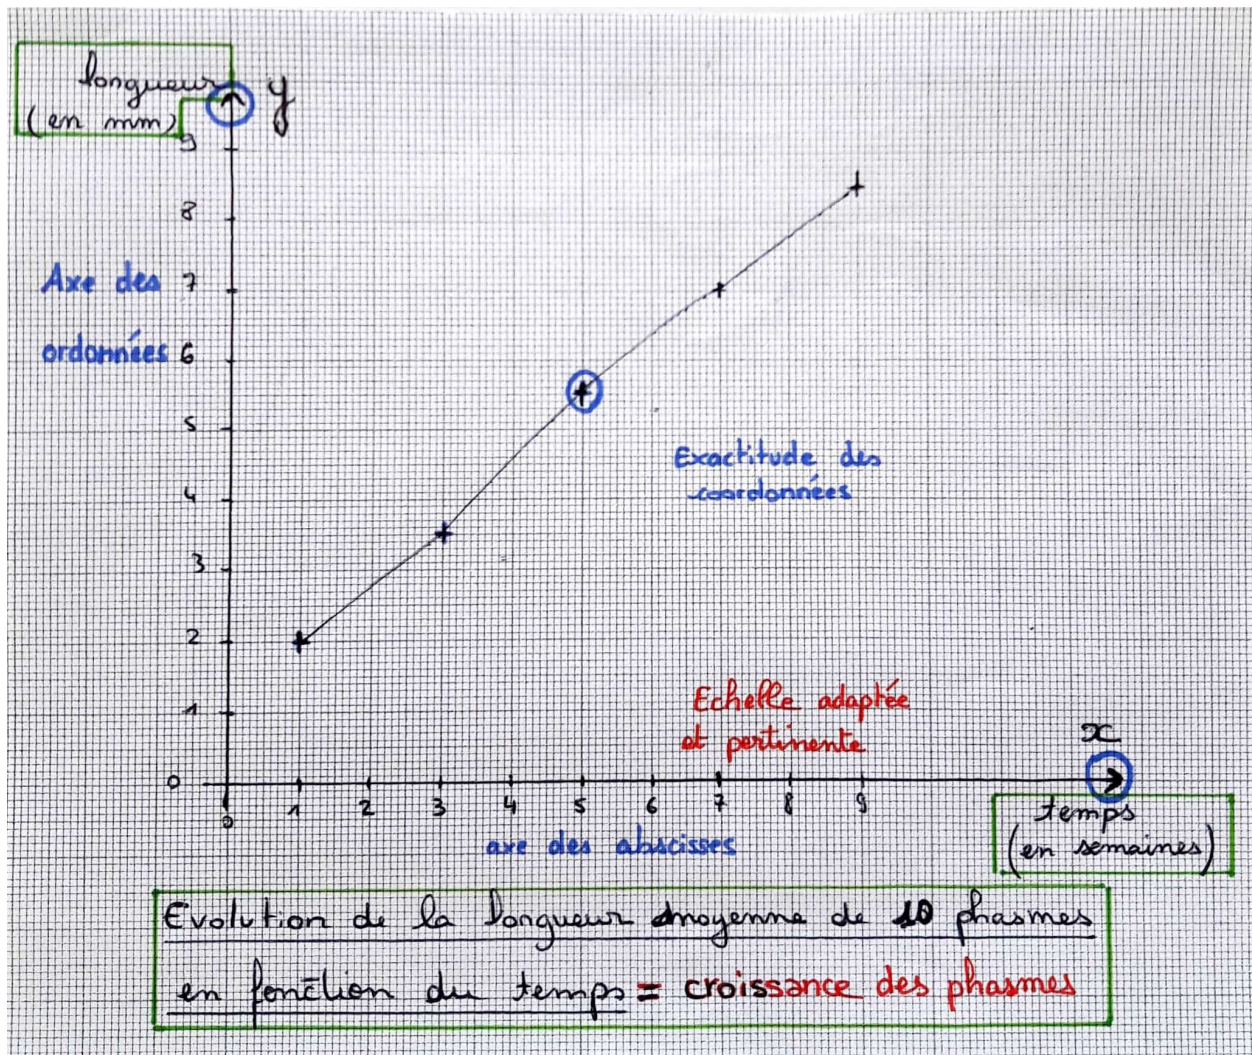 longueur
(en mm)
y
9
8
Axe des
7
ordonnées
6
5
Exactitude des
coordonnées
4
3
2
Echelle adaptée
1
et pertinente
x
0
0 1 2 3 4 5 6 7 8 9
temps
(en semaines)
axe des abscisses
Evolution de la longueur moyenne de 10 phasmes
en fonction du temps = croissance des phasmes